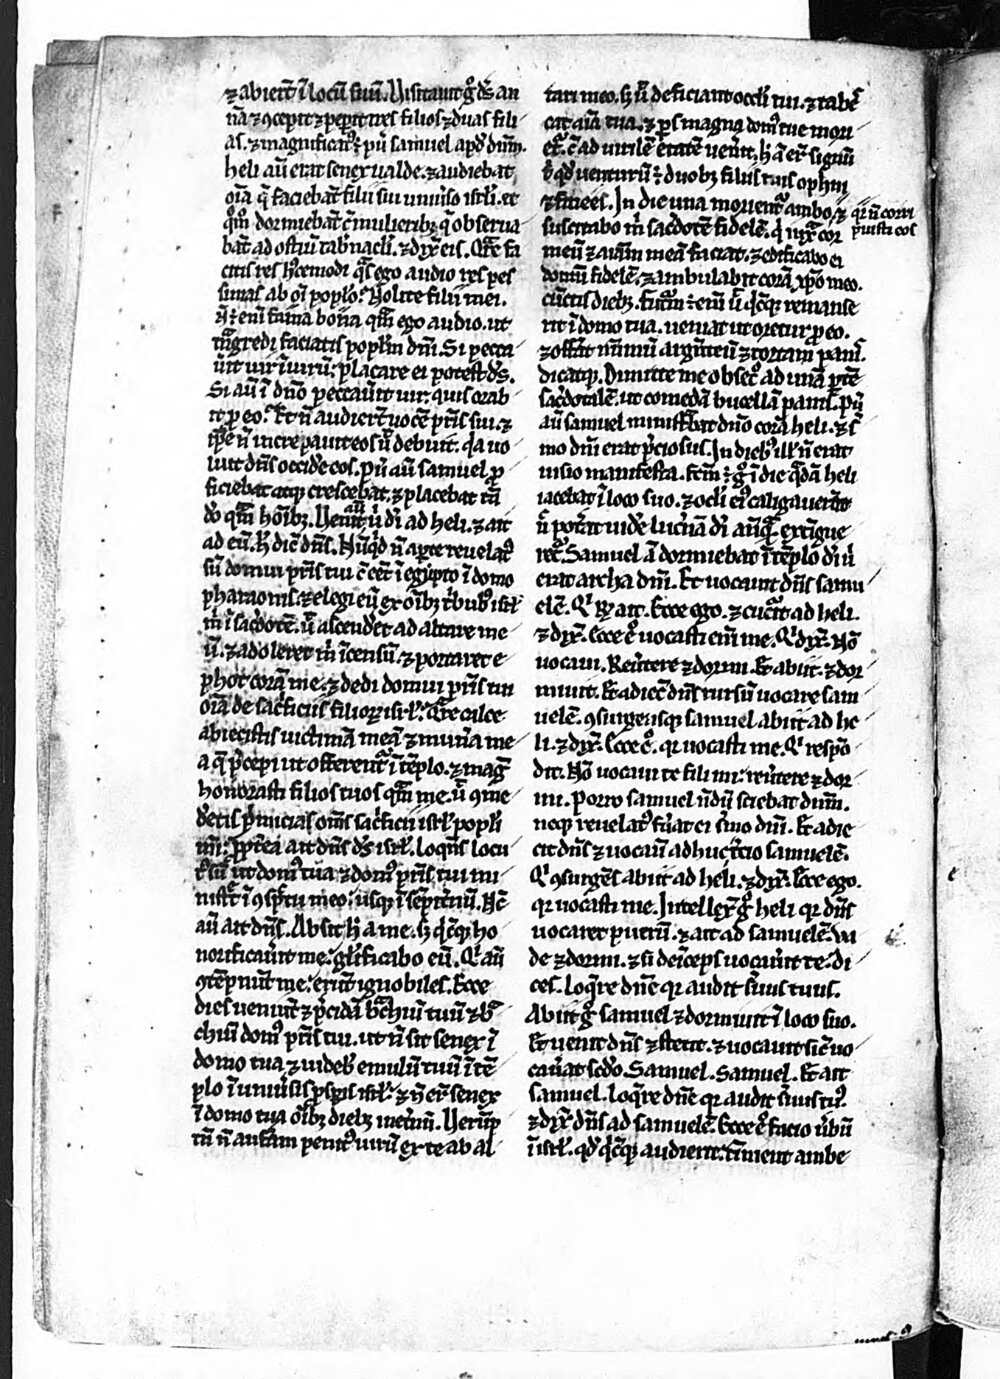 ⁊ abiert̃ ĩ locũ suũ. Visitauit g̊ dñs an
nã ⁊ ꝯcepit ⁊ peperit tres filios ⁊ duas fili
as. ⁊ magnificatꝰ ẽ pu͛ samuel apd̛ dñm.
heli aũ erat senex ualde. ⁊ audiebat
oĩa q̃ faciebãt filii sui uniu͛so isrl̃i. et
q̊m̊ dormiebãt cũ mulieribꝫ q̃ obserua
bãt ad ostiũ tab̛nacl̃i. ⁊ dix̃ eis. Qr̃e fa
citis res hͦcemodi q̃s ego audio res pes
simas ab oĩ popl̃o? Nolite filii mei.
ñ ẽ enĩ fama bona quã ego audio. ut
tñsgredi faciatis popl̃m dñi. Si pecca
u͛it uir ĩ uirũ: placare ei potest ds̃.
Si aũ ĩ dño peccau͛it uir: quis orab
it p eo? Et ñ audiert̃ uocẽ pr̃is sui. ⁊
ipẽ ñ increpauit eos ũ debuit. q̃a uo
luit dñs occid̛e eos. pu͛ aũ samuel pro
ficiebat atqꝫ crescebat. ⁊ placebat tã
dõ quã hoĩbꝫ. Venit aũ uir dĩ ad heli. ⁊ ait
ad eũ. h̃ dic̃ dñs. Nũqd̛ ñ apte reuelatꝰ
sũ domui pr̃is tui cũ eẽt ĩ egypto ĩ domo
pharaonis. ⁊ elegi eũ ex oĩbꝫ tribubꝰ isrl̃
m̃ ĩ sac̛dotẽ. ut̃ ascend̛et ad altare me
ũ. ⁊ adoleret m̃ ĩcensũ. ⁊ portaret e
phot corã me. ⁊ dedi domui pr̃is tui
oĩa de sac̛ficiis filioꝝ isrl̃. Qr̃e calce
abiecistis uictimã meã ⁊ mun͛a me
a q̃ p̃cepi ut offerent᷑ ĩ tẽplo. ⁊ mag̃
honorasti filios tuos quã me. ut̃ ꝯme
d̛etis p̃micias oĩs sac̛ficii isrl̃ popl̃i
mei: propt̛ea ait dñs ds̃ isrl̃. loquẽs locu
tꝰ sũ ut domꝰ tua ⁊ domꝰ pr̃is tui mi
nistrȇt ĩ ꝯspc̃tu meo: usqꝫ ĩ sempit̛nũ. Nc̃
aũ ait dñs. Absit h̃ a me. sꝫ q̃cũqꝫ ho
norificau͛it me: gl̃ificabo eũ. Qͥ aũ
ꝯtẽpnũt me: erũt ignobiles. Ecce
dies ueniũt ⁊ p̃cidã b̃chiũ tuũ ⁊ b̃
chiũ domꝰ pr̃is tui. ut ñ sit senex ĩ
domo tua ⁊ uideb̛ emulũ tuũ ĩ tẽ
plo ĩ uniu͛sis p̃spis isrl̃. ⁊ ñ er̃ senex
ĩ domo tua oĩbꝫ diebꝫ uerũpt̃n.
tñ ñ auferam penitꝰ uirũ ex te ab al
tari meo. sꝫ ut̃ deficiant ocl̃i tui. ⁊ tabes̃
cat aĩa tua. ⁊ p̃s magna domꝰ tue mori
et᷑. cũ ad uirilẽ etatẽ uen̛it. h̃ aũ er̃ signũ
t̛ qd̛ uenturũ ẽ duobꝫ filiis tuis ophni
⁊ finees. In die una morient᷑ ambo. ⁊
suscitabo m̃ sacdotẽ fidelẽ. qͥ iux̃ cor
meũ ⁊ aĩam meã faciat. ⁊ edificabo ei
domũ fidelẽ. ⁊ ambulabit corã xp̃o meo.
cũctis diebꝫ. Futurũ ẽ enĩ ut̃ qͥcũqꝫ remanse
rit ĩ domo tua. ueniat ut oretur p eo.
⁊ offerat nũmũ argẽteũ ⁊ tortam panis.
dicatqꝫ. Dimitte me obsecro ad unã p̃tẽ
sac̛dotalẽ. ut comedã bucellã panis. pu͛
aũ samuel ministrabat dño corã heli. ⁊ s̃
mo dñi erat p̃ciosus. In diebꝰ ill̃ ñ erat
uisio manifesta. Fc̃m ẽ g̊ ĩ die q̃dã heli
iacebat ĩ loco suo. ⁊ ocl̃i eiꝰ caligauerãt
ñ pot̛at uid̛e luc̛nã dĩ añq̃ extigue
ret᷑. Samuel aũ dormiebat ĩ tẽplo dñi u̇
erat archa dñi. Et uocauit dñs samu
elẽ. Qͥ rñs ait. Ecce ego. ⁊ cucr̃it ad heli.
⁊ dix̃. Ecce eͦ uocasti enĩ me. Qͥ dix̃. Nõ
uocaui. Reu͛tere ⁊ dormi. Et abiit. ⁊ dor
miuit. Et adiec̃ dñs rursũ uocare sam
uelẽ. ꝯsurgensqꝫ samuel abiit ad he
li. ⁊ dix̃. Ecce eͦ. qr uocasti me. Qͥ respõ
dit. Nõ uocaui te fili mi: reu͛tere ⁊ dor
mi. Porro samuel nd̃ũ sciebat dñm.
neqꝫ reuelatꝰ fu͛at ei s̃mo dñi. Et adie
cit dñs ⁊ uocauit adhuc t̛cio samuelẽ.
Qͥ ꝯsurgẽs abiit ad heli. ⁊ dix̃. Ecce ego.
qr uocasti me. Intellex̃ g̊ heli qr dñs
uocaret puerũ. ⁊ ait ad samuelẽ. Va
de ⁊ dormi. ⁊ si deĩceps uocau͛it te. di
ces. loq̃re dñe qr audit s̛uus tuus.
Abiit g̊ samuel ⁊ dormiuit ĩ loco suo.
Et uenit dñs ⁊ stetit. ⁊ uocauit sic̃ uo
cau͛at scd̃o. Samuel. Samuel. Et ait
samuel. loq̃re dñe qr audit s̛uus tuꝰ.
⁊ dix̃ dñs ad samuelẽ. Ecce eͦ facio u͛bũ
ĩ isrl̃. qd̛ qͥcũqꝫ audierit. tĩnient ambe
qr ñ corri
puisti eos